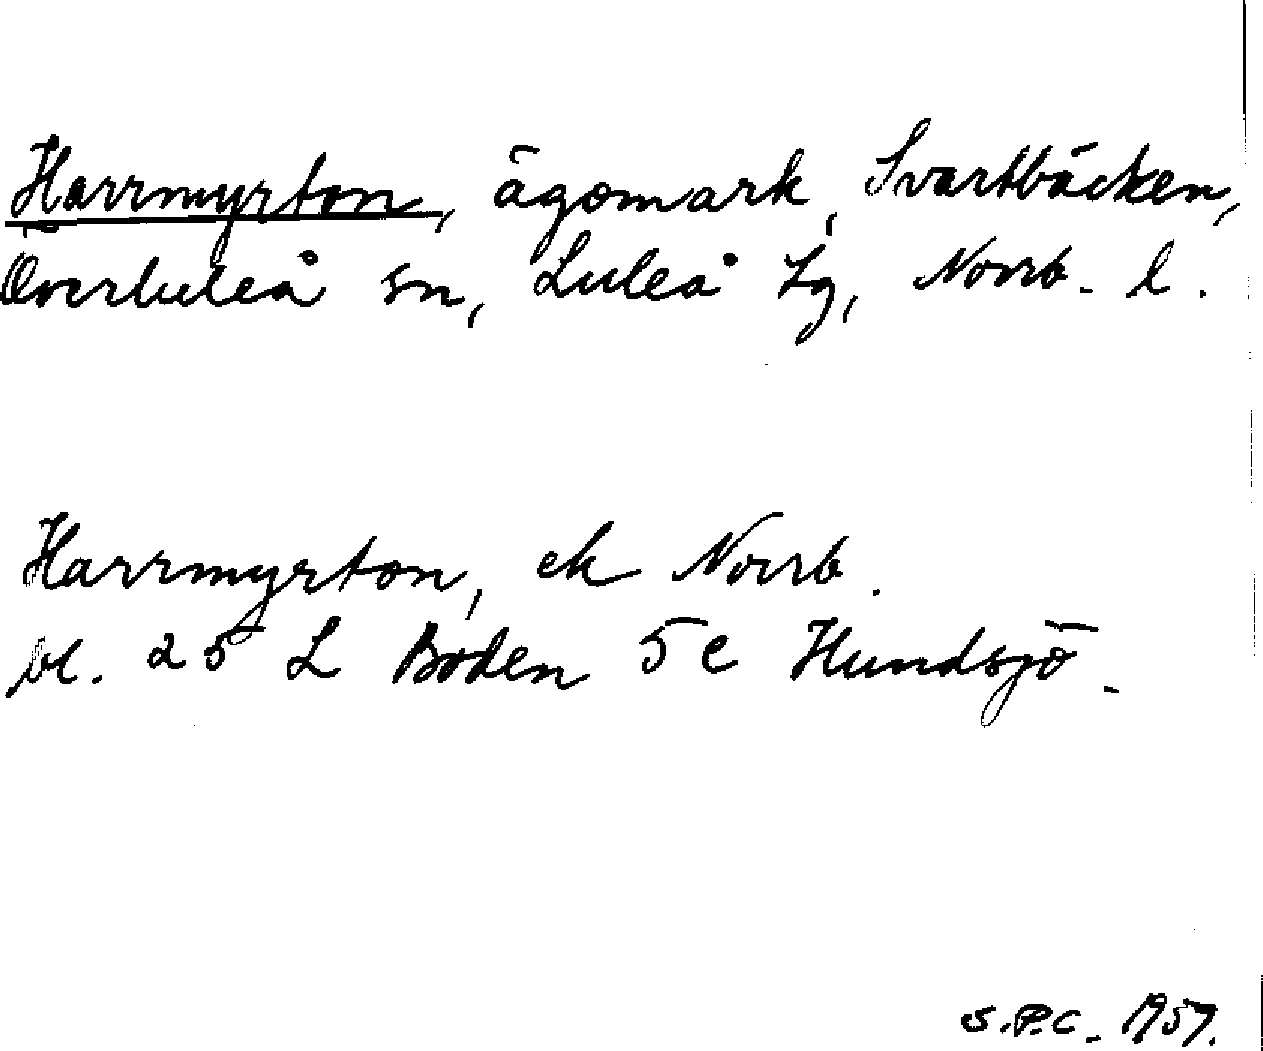 Harrmyrton, ägomark, Svartbäcken,
Överluleå sn, Luleå tg, Norrb. l.
Harrmyrton, ek Norrb.
bl. 25 L Boden 5 e Hundsjö.
S.P.C. 1957.